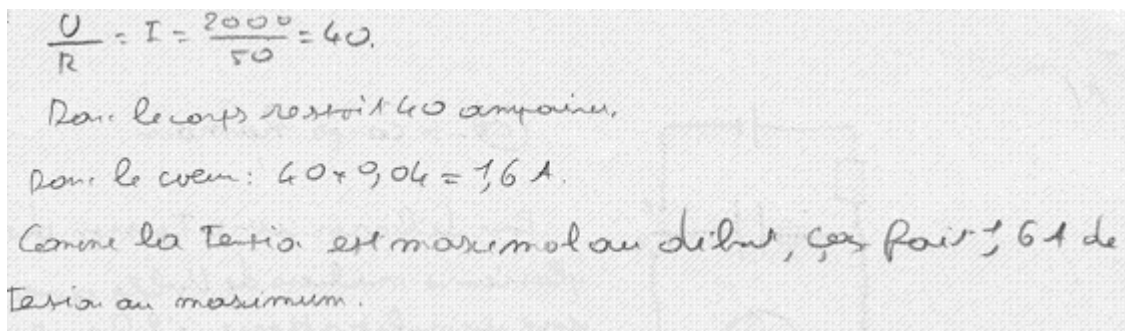 U/R = I = 2000/50 = 40.
Donc le corps ressoit 40 ampaires.
Donc le coeur : 40 x 0,04 = 1,6 A.
Comme la tensio est maximal au début, ças fait 1,6 A de
tensio au maximum.